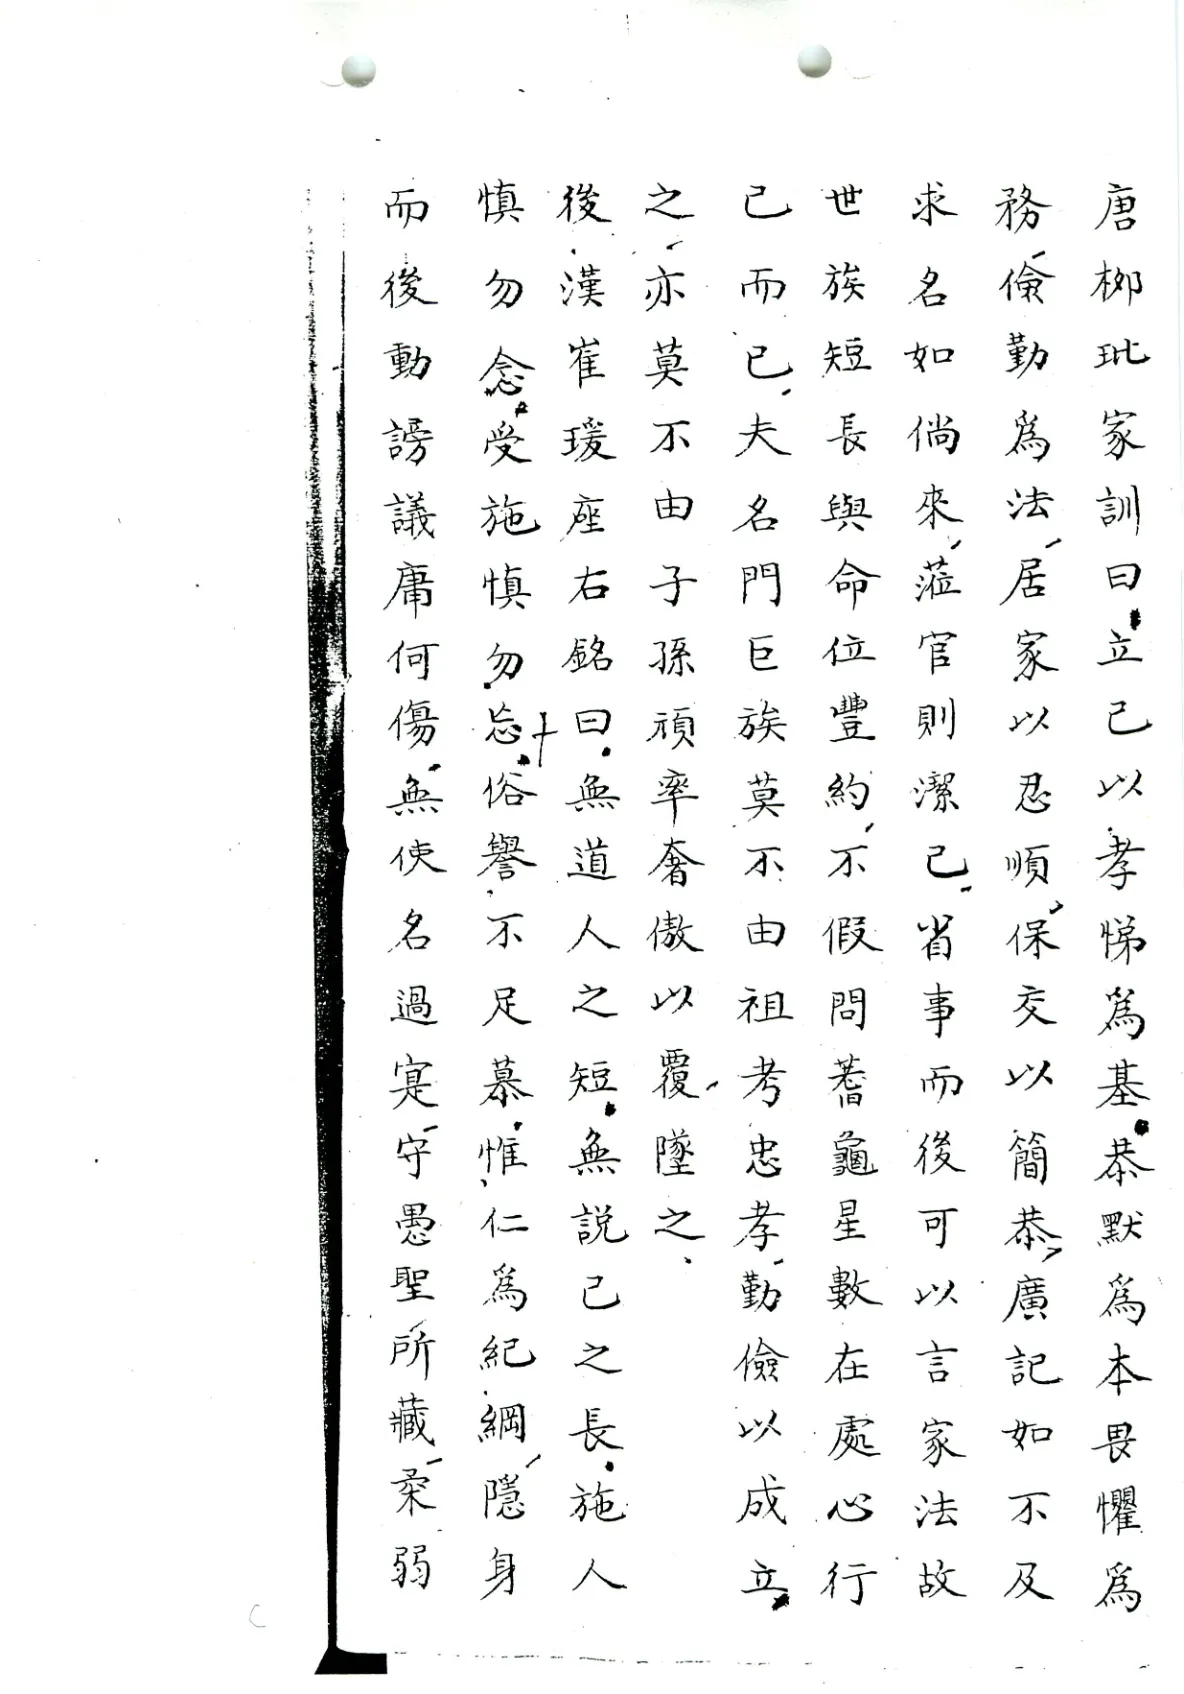 唐柳玭家訓曰立己以孝悌爲基恭默爲本畏懼爲
務儉勤爲法居家以忍順保交以簡恭廣記如不及
求名如倘來蒞官則潔己省事而後可以言家法故
世族短長與命位豐約不假問蓍龜星數在處心行
己而已夫名門巨族莫不由祖考忠孝勤儉以成立
之亦莫不由子孫頑率奢傲以覆墜之
後漢崔瑗座右銘曰無道人之短無說己之長施人
慎勿念受施慎勿忘俗譽不足慕惟仁爲紀綱隱身
而後動謗議庸何傷無使名過寔守愚聖所藏柔弱